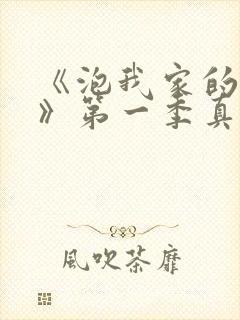 《泡我家的
》第一季真
風吹荼靡